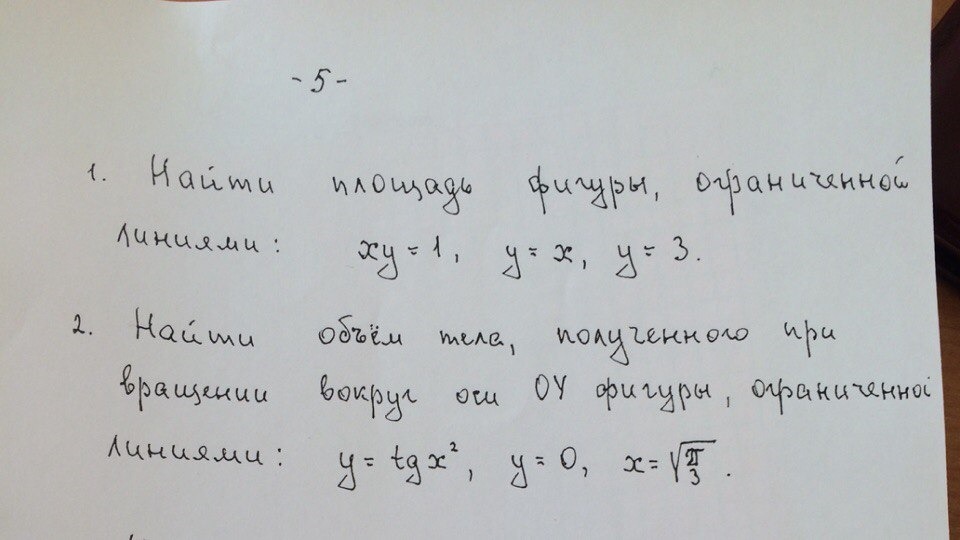 -5-
1. Найти площадь фигуры, ограниченной
линиями: xy = 1, y = x, y = 3.
2. Найти объём тела, полученного при
вращении вокруг оси OY фигуры, ограниченной
линиями: y = tg x², y = 0, x = √(π/3).